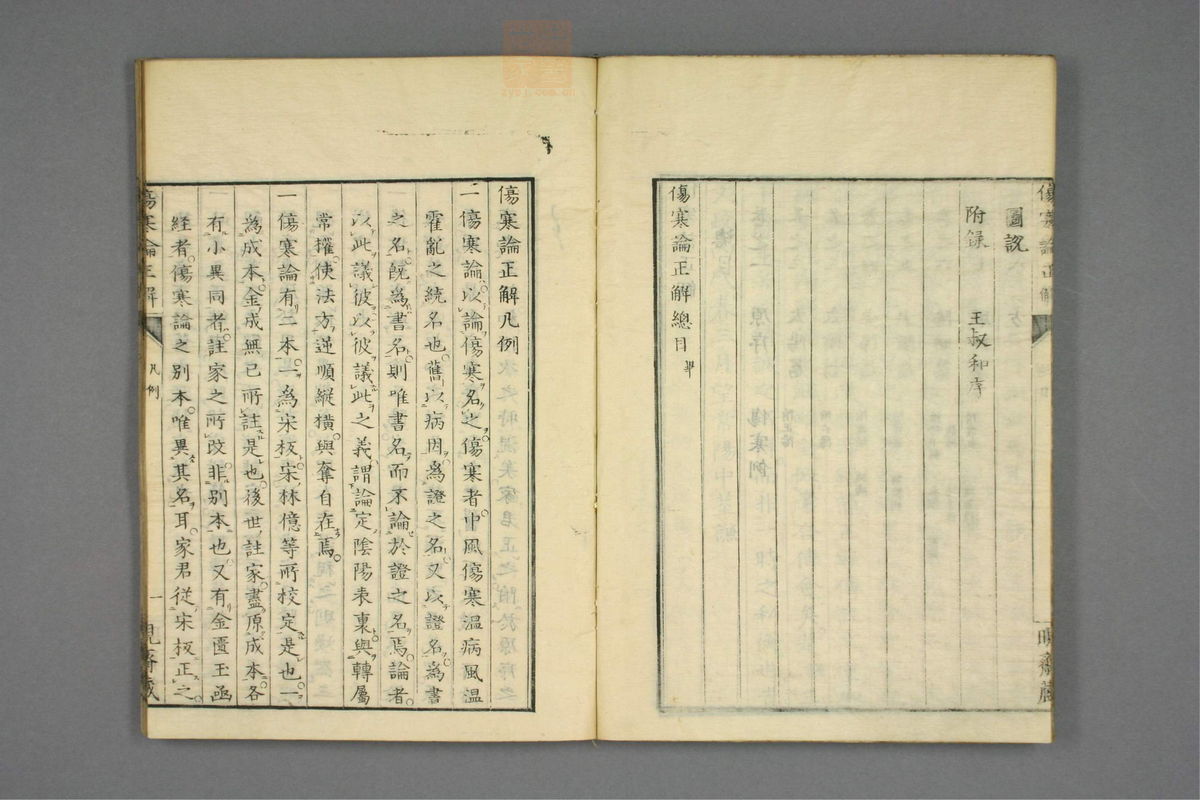 傷寒論正解
圖說
附錄
王叔和序
傷寒論正解總目畢
傷寒論正解凡例
一傷寒論以論傷寒名之傷寒者中風傷寒溫病風溫
霍亂之統名也舊以病因爲證之名又以證名爲書
之名旣爲書名則唯書名而不論於證之名焉論者
以此議彼以彼議此之義謂論定陰陽表裏與轉屬
常權使法方逆順縱橫與奪自在焉
一傷寒論有二本一爲宋板宋林億等所校定是也一
爲成本金成無已所註是也後世註家盡原成本各
有小異同者註家之所改非別本也又有金匱玉函
経者傷寒論之別本唯異其名耳家君從宋板正之
傷寒論正解
凡例
一
zysj.com.cn